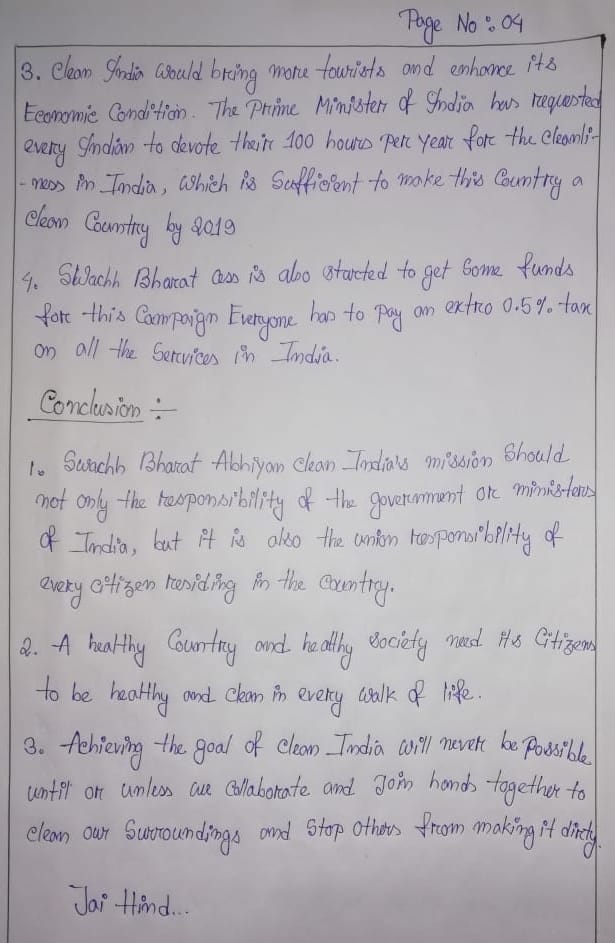 Page No : 04
3. Clean India would bring more tourists and enhance its
Economic Condition. The Prime Minister of India has requested
every Indian to devote their 100 hours per year for the cleanli-
-ness in India, which is Sufficient to make this Country a
Clean Country by 2019
4. Swachh Bharat cess is also started to get Some funds
for this Campaign Everyone has to pay an extra 0.5% tax
on all the Services in India.
Conclusion :-
1. Swachh Bharat Abhiyan Clean India's mission Should
not only the responsibility of the government or ministers
of India, but it is also the union responsibility of
every citizen residing in the Country.
2. A healthy Country and healthy Society need its Citizens
to be healthy and clean in every walk of life.
3. Achieving the goal of clean India will never be Possible
until or unless we Collaborate and Join hands together to
clean our Surroundings and Stop others from making it dirty.
Jai Hind...